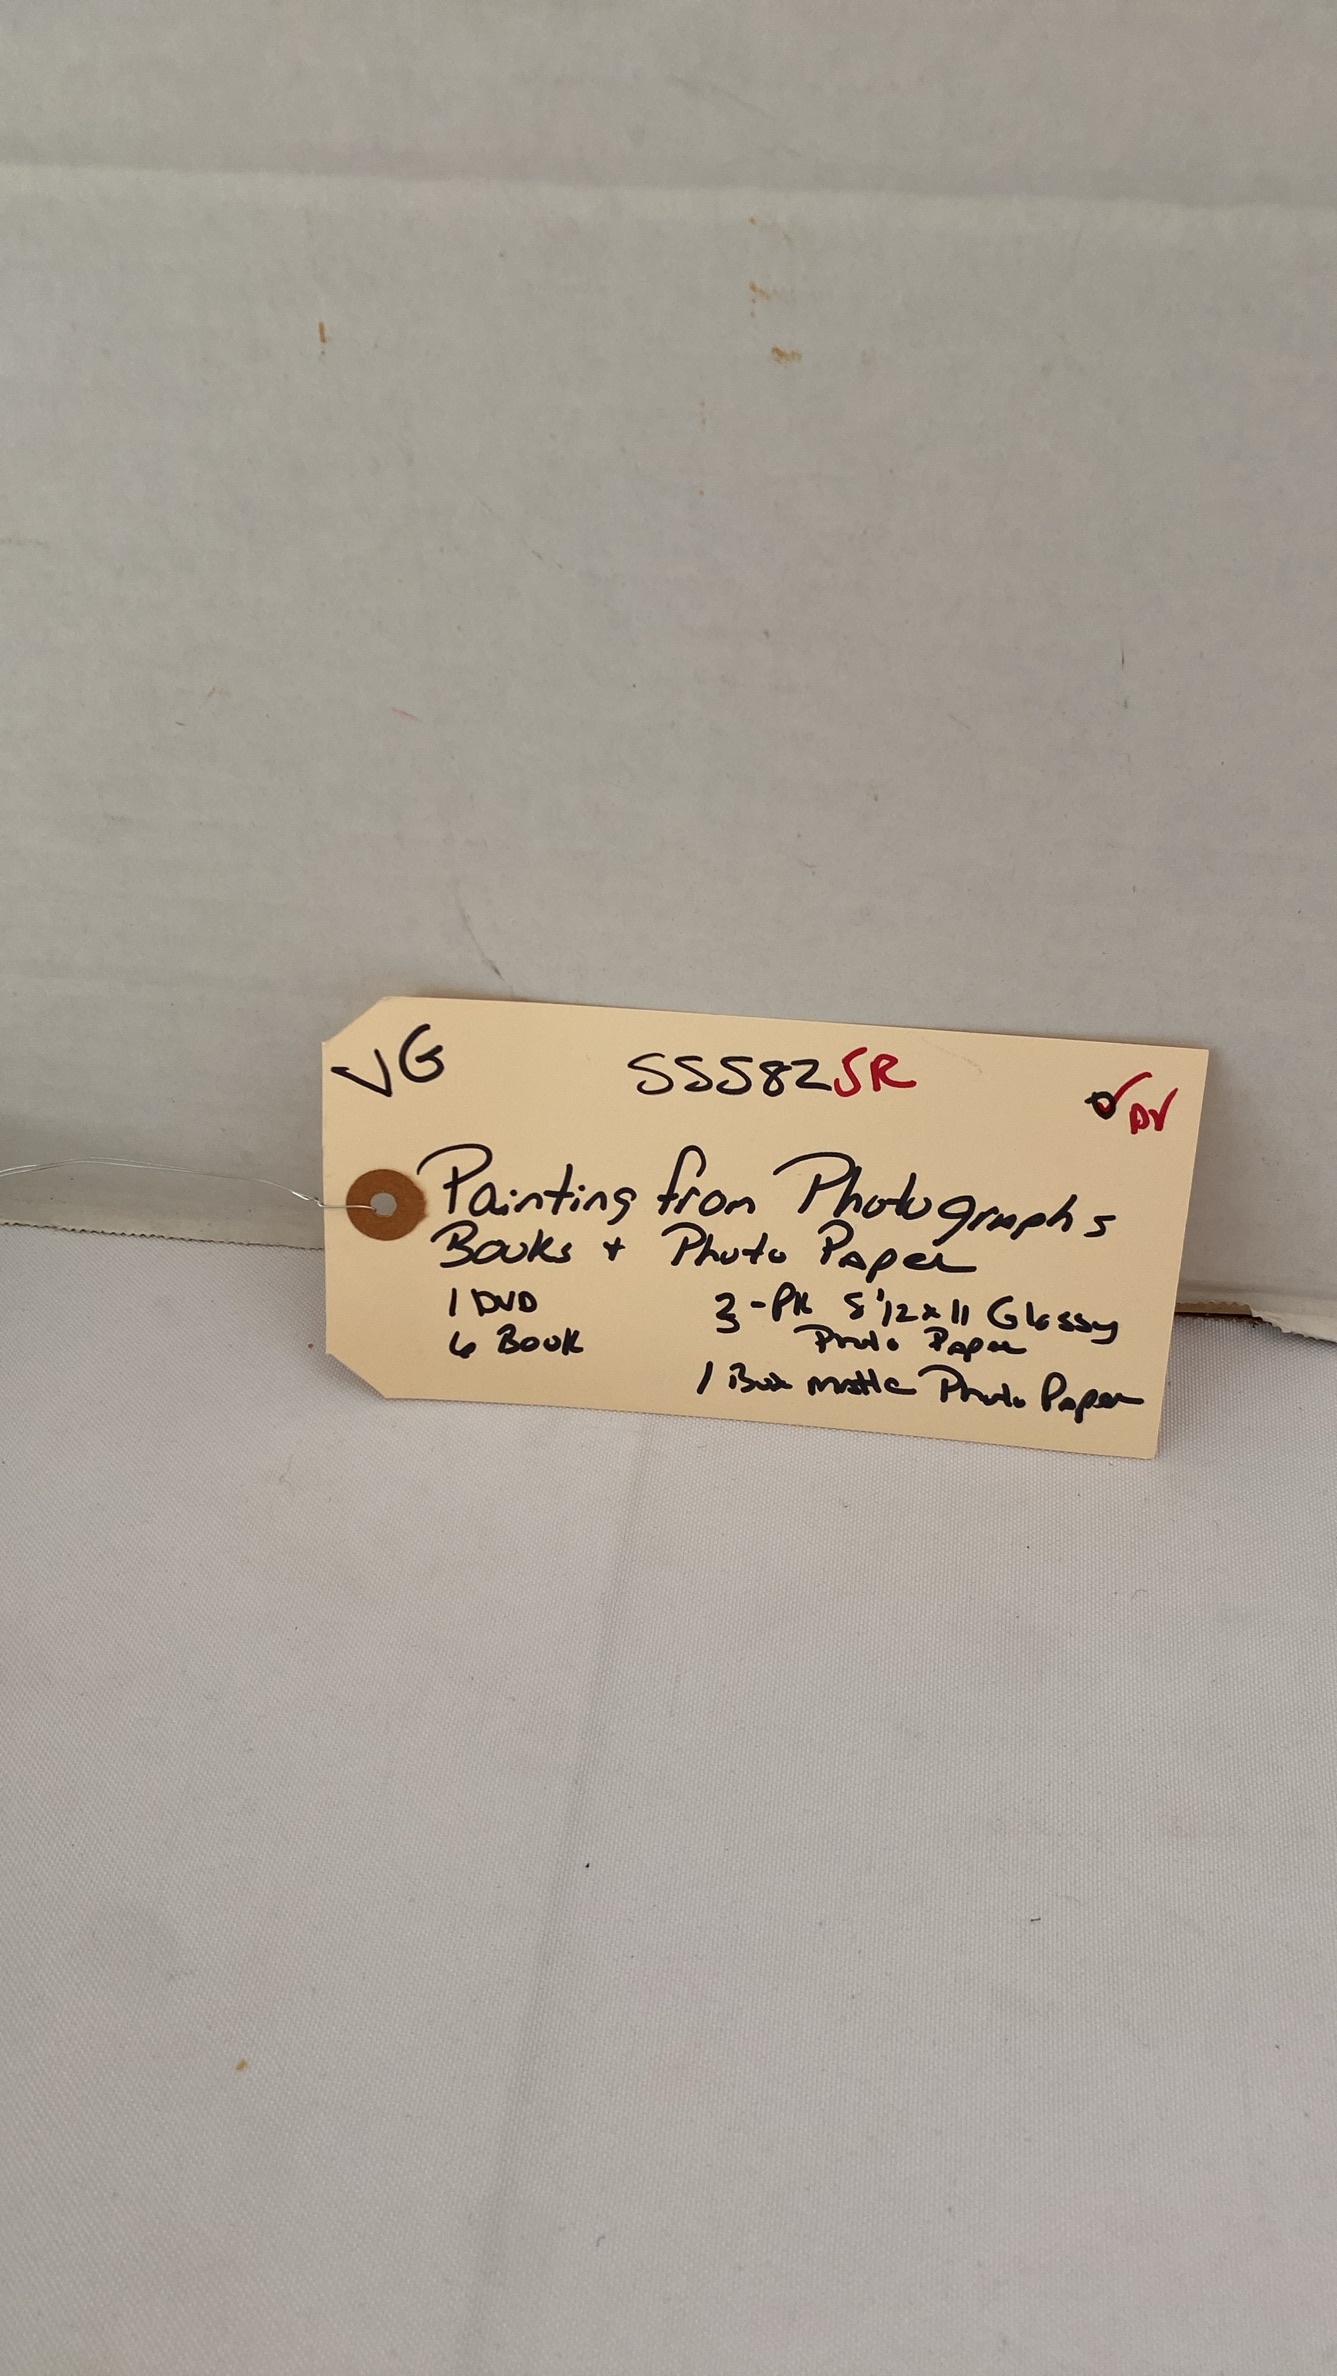 VG 55582SR
DV
Painting from Photographs
Books + Photo Paper
1 DVD 3-PK 8 1/2 x 11 Glossy
Photo Paper
6 Book
1 Box matte Photo Paper